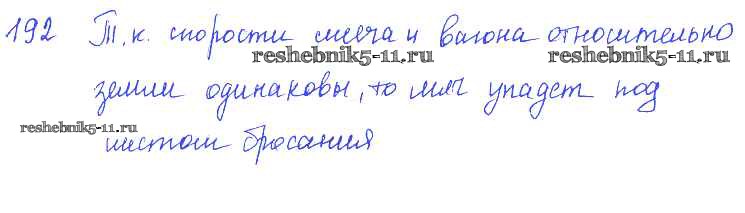 192 Т.к. скорости мяча и вагона относительно
reshebnik5-11.ru reshebnik5-11.ru
земли одинаковы, то мяч упадет под
reshebnik5-11.ru
местом бросания